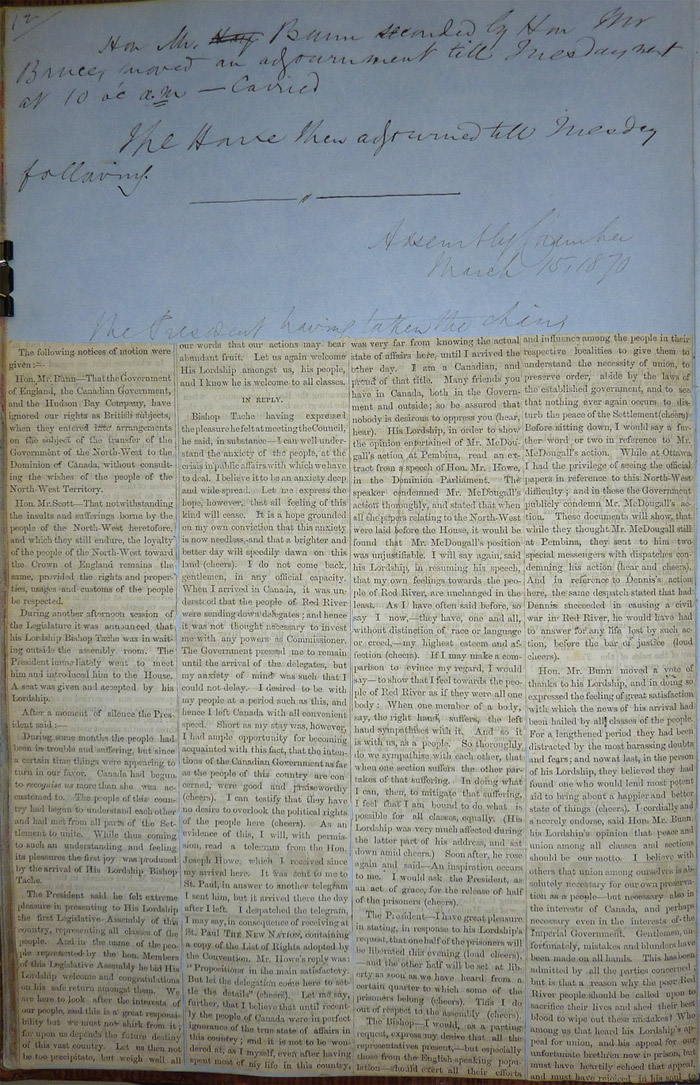 12
Hon Mr. Bunn seconded by Hon Mr
Bruce, moved an adjournment till Tuesday next
at 10 oc a.m — Carried
The House then adjourned till Tuesday
following.
Assembly Chamber
March 15, 1870
The President having taken the chair
The following notices of motion were
given:—
Hon. Mr. Bunn—That the Government
of England, the Canadian Government,
and the Hudson Bay Company, have
ignored our rights as British subjects,
when they entered into arrangements
on the subject of the transfer of the
Government of the North-West to the
Dominion of Canada, without consult-
ing the wishes of the people of the
North-West Territory.
Hon. Mr. Scott—That notwithstanding
the insults and sufferings borne by the
people of the North-West heretofore,
and which they still endure, the loyalty
of the people of the North-West toward
the Crown of England remains the
same, provided the rights and proper-
ties, usages and customs of the people
be respected.
During another afternoon session of
the Legislature it was announced that
his Lordship Bishop Tache was in wait-
ing outside the assembly room. The
President immediately went to meet
him and introduced him to the House.
A seat was given and accepted by his
Lordship.
After a moment of silence the Pres-
ident said:—
During some months the people had
been in trouble and suffering, but since
a certain time things were appearing to
turn in our favor. Canada had begun
to recognise us more than she was ac-
customed to. The people of this coun-
try had begun to understand each other
and had met from all parts of the Set-
tlement to unite. While thus coming
to such an understanding and feeling
its pleasures the first joy was produced
by the arrival of His Lordship Bishop
Tache.
The President said he felt extreme
pleasure in presenting to His Lordship
the first Legislative Assembly of this
country, representing all classes of the
people. And in the name of the peo-
ple represented by the hon. Members
of this Legislative Assembly he bid His
Lordship welcome and congratulations
on his safe return amongst them. We
are here to look after the interests of
our people, and this is a great responsi-
bility but we must not shirk from it;
for upon us depends the future destiny
of this vast country. Let us then not
be too precipitate, but weigh well all
our words that our actions may bear
abundant fruit. Let us again welcome
His Lordship amongst us, his people,
and I know he is welcome to all classes.
IN REPLY.
Bishop Tache having expressed
the pleasure he felt at meeting the Council,
he said, in substance—I can well under-
stand the anxiety of the people, at the
crisis in public affairs with which we have
to deal. I believe it to be an anxiety deep
and wide-spread. Let me express the
hope, however, that all feeling of this
kind will cease. It is a hope grounded
on my own conviction that this anxiety
is now needless, and that a brighter and
better day will speedily dawn on this
land (cheers). I do not come back,
gentlemen, in any official capacity.
When I arrived in Canada, it was un-
derstood that the people of Red River
were sending down delegates; and hence
it was not thought necessary to invest
me with any powers as Commissioner.
The Government pressed me to remain
until the arrival of the delegates, but
my anxiety of mind was such that I
could not delay. I desired to be with
my people at a period such as this, and
hence I left Canada with all convenient
speed. Short as my stay was, however,
I had ample opportunity for becoming
acquainted with this fact, that the inten-
tions of the Canadian Government as far
as the people of this country are con-
cerned, were good and praiseworthy
(cheers). I can testify that they have
no desire to overlook the political rights
of the people here (cheers). As an
evidence of this, I will, with permis-
sion, read a telegram from the Hon.
Joseph Howe, which I received since
my arrival here. It was sent to me to
St. Paul, in answer to another telegram
I sent him, but it arrived there the day
after I left. I despatched the telegram,
I may say, in consequence of receiving at
St. Paul THE NEW NATION, containing
a copy of the List of Rights adopted by
the Convention. Mr. Howe's reply was:
"Propositions in the main satisfactory.
But let the delegation come here to set-
tle the details" (cheers). Let me say,
further, that I believe that until recent-
ly the people of Canada were in perfect
ignorance of the true state of affairs in
this country; and it is not to be won-
dered at, as I myself, even after having
spent most of my life in this country,
was very far from knowing the actual
state of affairs here, until I arrived the
other day. I am a Canadian, and
proud of that title. Many friends you
have in Canada, both in the Govern-
ment and outside; so be assured that
nobody is desirous to oppress you (hear,
hear). His Lordship, in order to show
the opinion entertained of Mr. McDou-
gall's action at Pembina, read an ex-
tract from a speech of Hon. Mr. Howe,
in the Dominion Parliament. The
speaker condemned Mr. McDougall's
action thoroughly, and stated that when
all the papers relating to the North-West
were laid before the House, it would be
found that Mr. McDougall's position
was unjustifiable. I will say again, said
his Lordship, in resuming his speech,
that my own feelings towards the peo-
ple of Red River, are unchanged in the
least. As I have often said before, so
say I now,—they have, one and all,
without distinction of race or language
or creed,—my highest esteem and af-
fection (cheers). If I may make a com-
parison to evince my regard, I would
say—to show that I feel towards the peo-
ple of Red River as if they were all one
body: When one member of a body,
say, the right hand, suffers, the left
hand sympathises with it. And so it
is with us, as a people. So thoroughly
do we sympathise with each other, that
when one section suffers the other par-
takes of that suffering. In doing what
I can, then, to mitigate that suffering,
I feel that I am bound to do what is
possible for all classes, equally. (His
Lordship was very much affected during
the latter part of his address, and sat
down amid cheers.) Soon after, he rose
again and said—An inspiration occurs
to me. I would ask the President, as
an act of grace, for the release of half
of the prisoners (cheers).
The President—I have great pleasure
in stating, in response to his Lordship's
request, that one half of the prisoners will
be liberated this evening (loud cheers),
—and the other half will be set at lib-
erty as soon as we have heard from a
certain quarter to which some of the
prisoners belong (cheers). This I do
out of respect to the assembly (cheers).
The Bishop—I would, as a parting
request, express my desire that all the
representatives present,—but especially
those from the English-speaking popu-
lation—should exert all their efforts
and influence among the people in their
respective localities to give them to
understand the necessity of union, to
preserve order, abide by the laws of
the established government, and to see
that nothing ever again occurs to dis-
turb the peace of the Settlement (cheers).
Before sitting down, I would say a fur-
ther word or two in reference to Mr.
McDougall's action. While at Ottawa,
I had the privilege of seeing the official
papers in reference to this North-West
difficulty; and in these the Government
publicly condemn Mr. McDougall's ac-
tion. These documents will show, that
while they thought Mr. McDougall still
at Pembina, they sent to him two
special messengers with dispatches con-
demning his action (hear and cheers).
And in reference to Dennis's action
here, the same despatch stated that had
Dennis succeeded in causing a civil
war in Red River, he would have had
to answer for any life lost by such ac-
tion, before the bar of justice (loud
cheers).
Hon. Mr. Bunn moved a vote of
thanks to his Lordship, and in doing so
expressed the feeling of great satisfaction
with which the news of his arrival had
been hailed by all classes of the people.
For a lengthened period they had been
distracted by the most harassing doubts
and fears; and now at last, in the person
of his Lordship, they believed they had
found one who would lend most potent
aid to bring about a happier and better
state of things (cheers). I cordially and
sincerely endorse, said Hon. Mr. Bunn
his Lordship's opinion that peace and
union among all classes and sections
should be our motto. I believe with
others that union among ourselves is ab-
solutely necessary for our own preserva-
tion as a people—but necessary also in
the interests of Canada, and perhaps
necessary even in the interests of the
Imperial Government. Gentlemen, un-
fortunately, mistakes and blunders have
been made on all hands. This has been
admitted by all the parties concerned,
but is that a reason why the poor Red
River people should be called upon to
sacrifice their lives and shed their best
blood to wipe out these mistakes? Who
among us that heard his Lordship's ap-
peal for union, and his appeal for our
unfortunate brethren now in prison, but
must have heartily echoed that appeal
and must have rejoiced in his soul